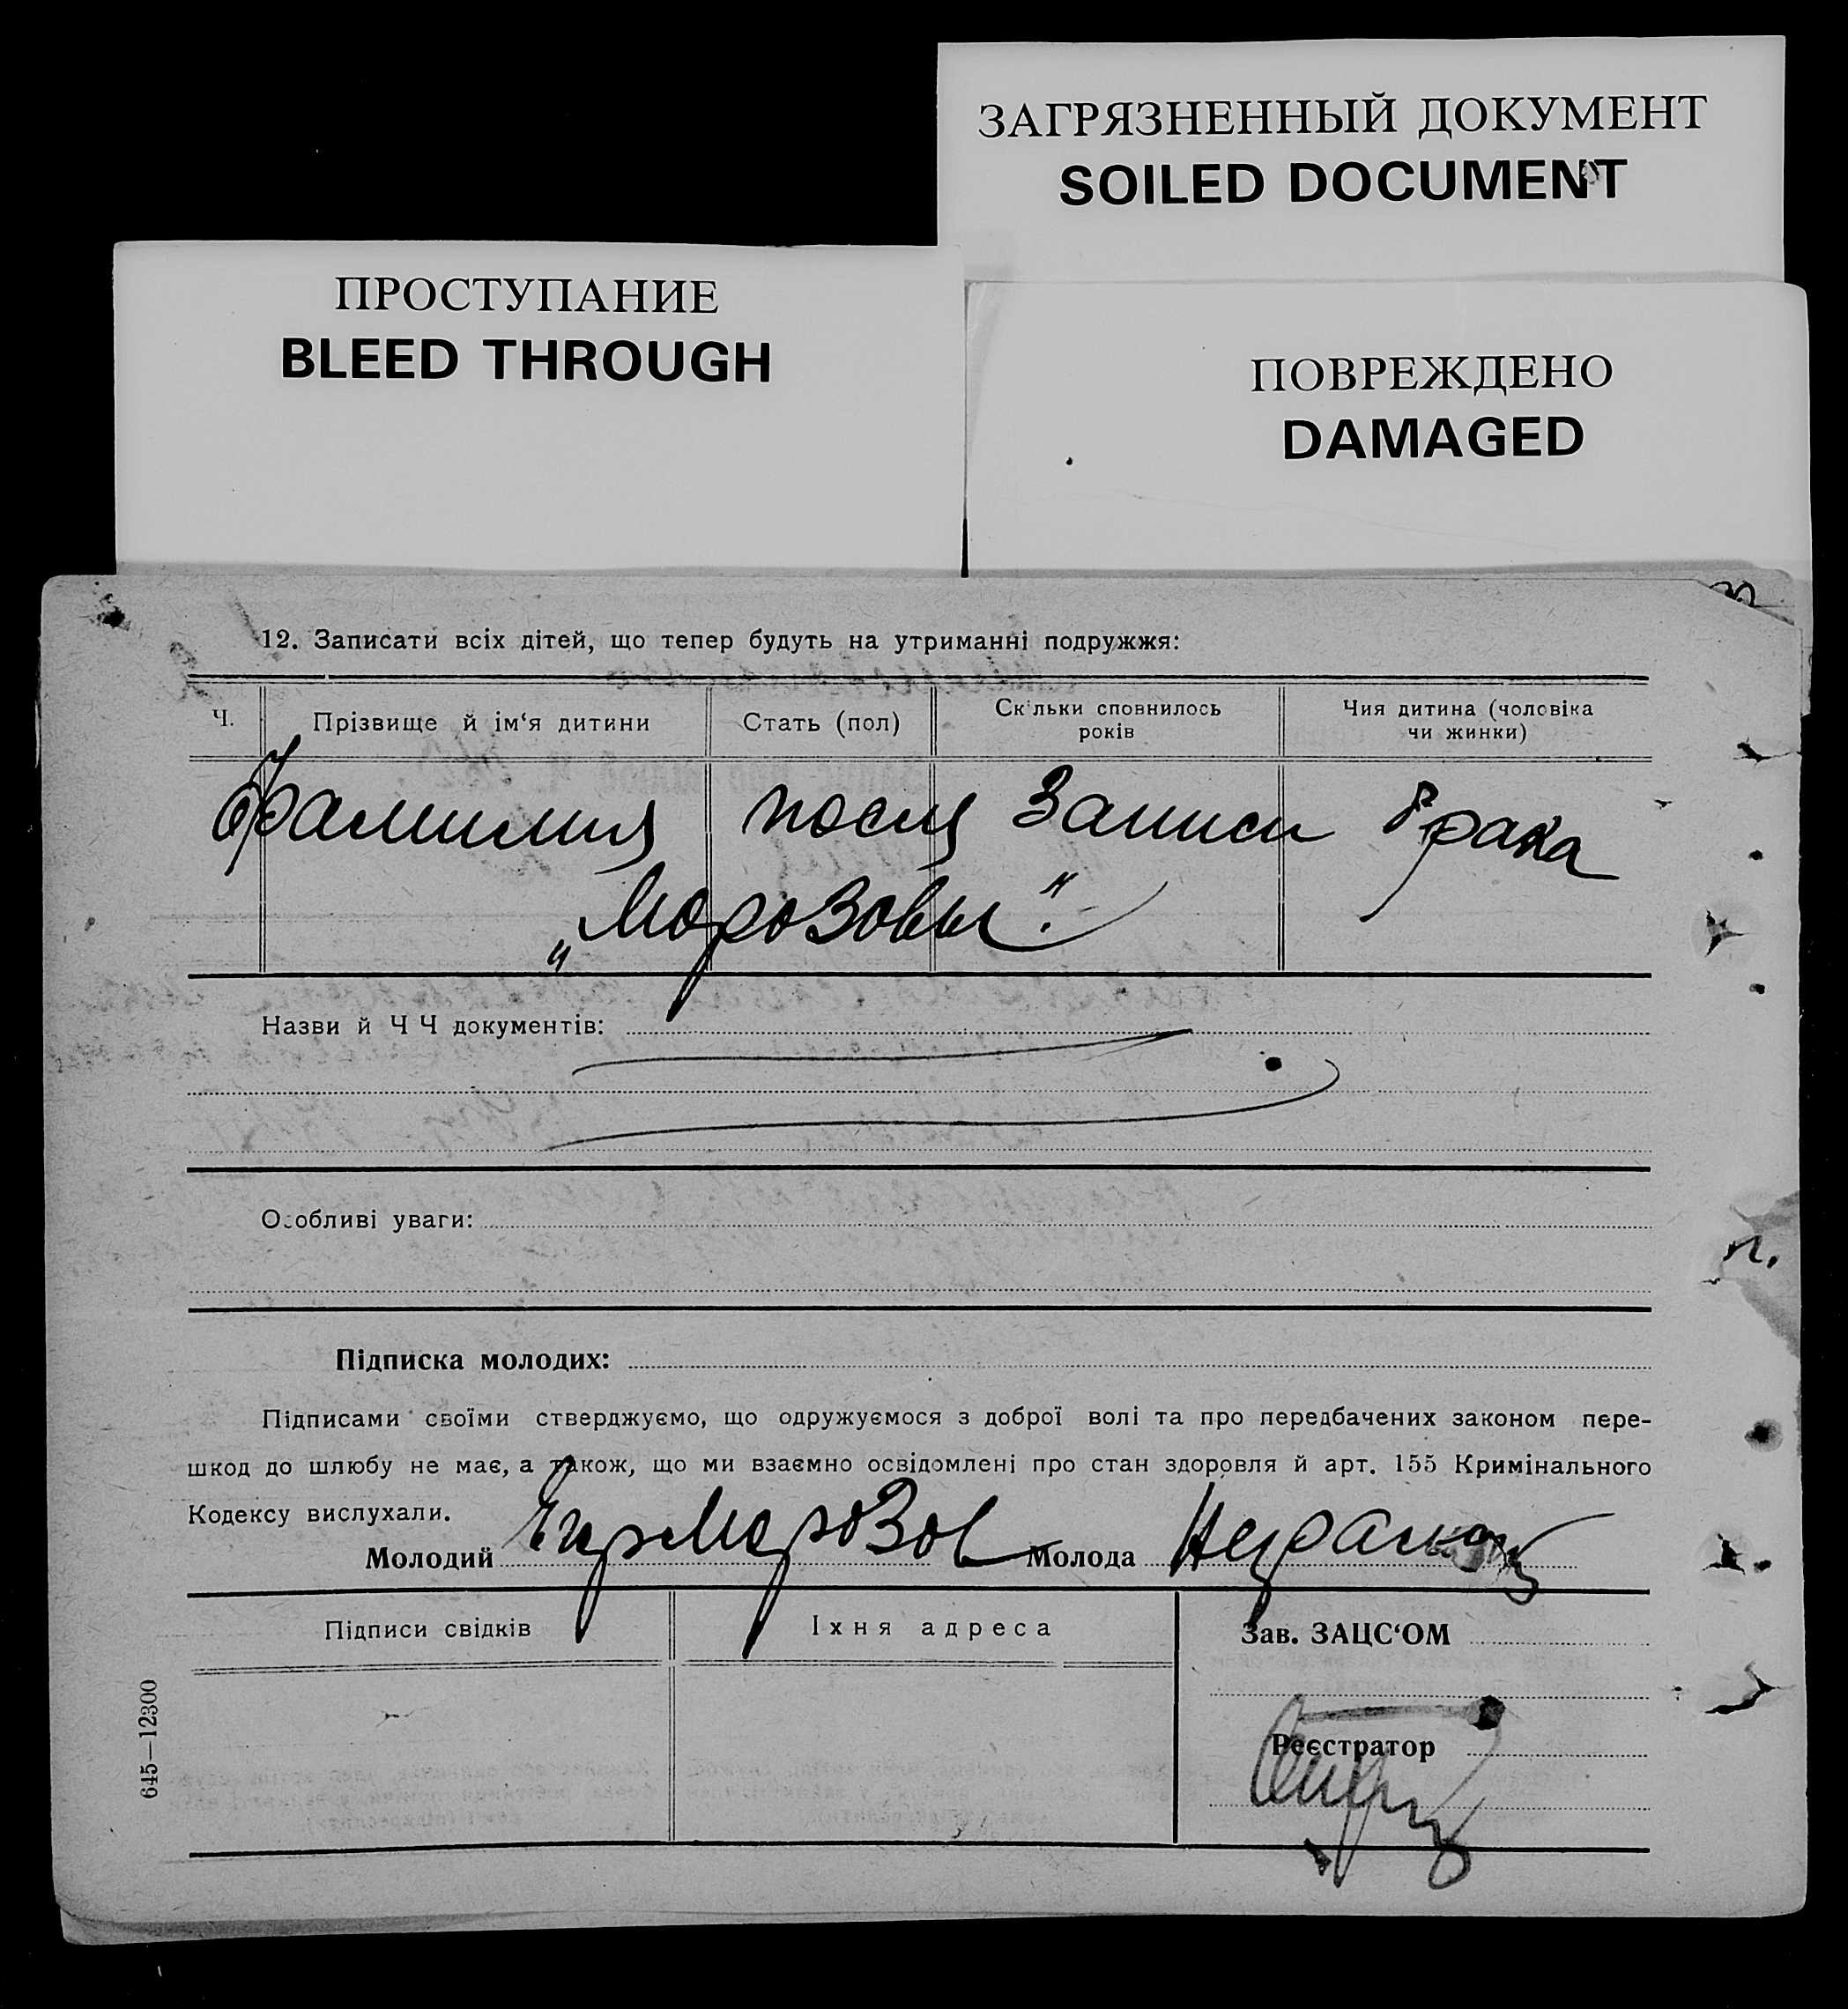 ЗАГРЯЗНЕННЫЙ ДОКУМЕНТ
SOILED DOCUMENT
ПРОСТУПАНИЕ
BLEED THROUGH
ПОВРЕЖДЕНО
DAMAGED
12. Записати всіх дітей, що тепер будуть на утриманні подружжя:
Ч.
Прізвище й ім‘я дитини
Стать (пол)
Скільки сповнилось
років
Чия дитина (чоловіка
чи жинки)
Фамилия после записи брака
„Морозовы“.
Назви й Ч Ч документів:
Особливі уваги:
Підписка молодих:
Підписами своїми стверджуємо, що одружуємося з доброї волі та про передбачених законом пере-
шкод до шлюбу не має, а також, що ми взаємно освідомлені про стан здоровля й арт. 155 Кримінального
Кодексу вислухали.
Молодий Морозов Молода
Підписи свідків
Їхня адреса
Зав. ЗАЦС‘ОМ
Реєстратор
645—12300